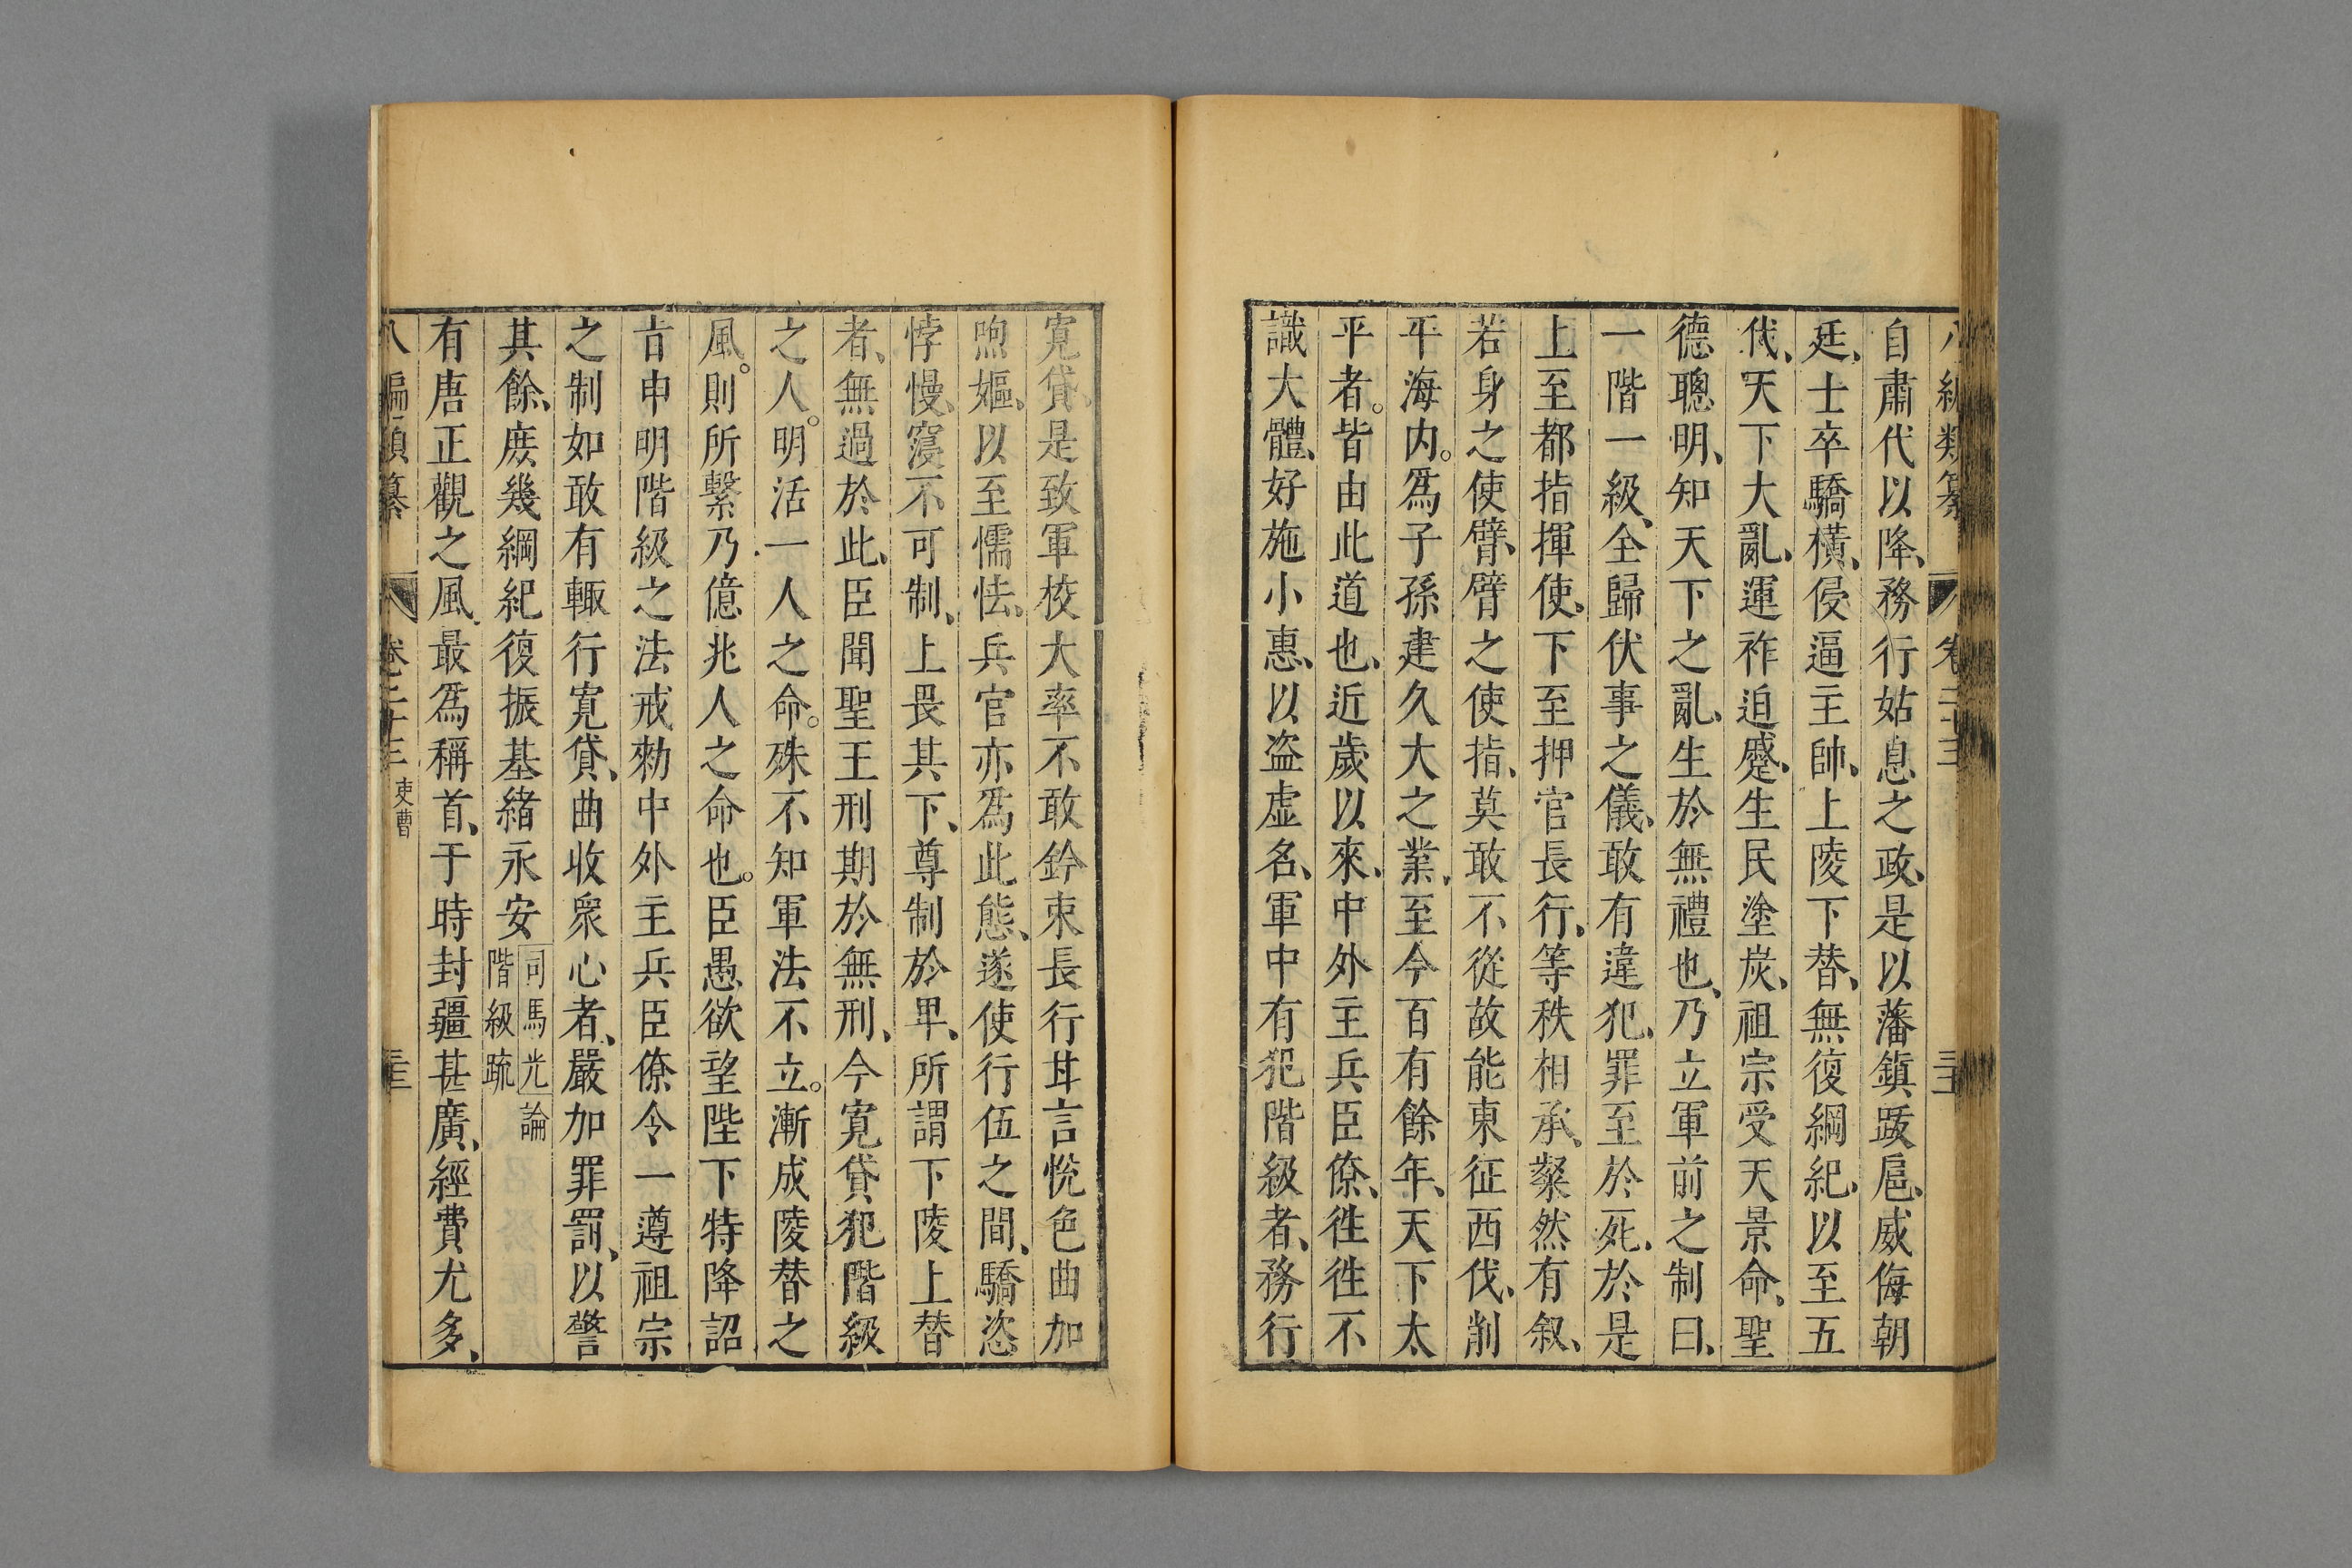 自肅代以降、務行姑息之政、是以藩鎮䟦扈、威侮朝
廷、士卒驕橫、侵逼主帥、上陵下替、無復綱紀、以至五
代、天下大亂、運祚迫蹙、生民塗炭、祖宗受天景命、聖
德聰明、知天下之亂、生於無禮也、乃立軍前之制曰、
一階一級、全歸伏事之儀、敢有違犯、罪至於死、於是
上至都指揮使、下至押官長行、等秩相承、粲然有叙、
若身之使臂、臂之使指、莫敢不從故能東征西伐、削
平海内。爲子孫建久大之業、至今百有餘年、天下太
平者。皆由此道也、近歲以來、中外主兵臣僚、徃徃不
識大體、好施小惠、以盜虛名、軍中有犯階級者、務行
寬貸、是致軍校大率不敢鈐束長行甘言悅色曲加
煦嫗、以至懦怯、兵官亦爲此態、遂使行伍之間、驕恣
悖慢、寖不可制、上畏其下、尊制於卑、所謂下陵上替
者、無過於此、臣聞聖王刑期於無刑、今寬貸犯階級
之人。明活一人之命。殊不知軍法不立。漸成陵替之
風。則所繫乃億兆人之命也。臣愚欲望陛下特降詔
旨申明階級之法戒勑中外主兵臣僚令一遵祖宗
之制如敢有輙行寬貸、曲收衆心者、嚴加罪罰、以警
其餘、庶幾綱紀復振基緒永安司馬光論階級疏
有唐正觀之風、最爲稱首、于時封疆甚廣、經費尤多、
八編類纂 卷二十三 吏曹